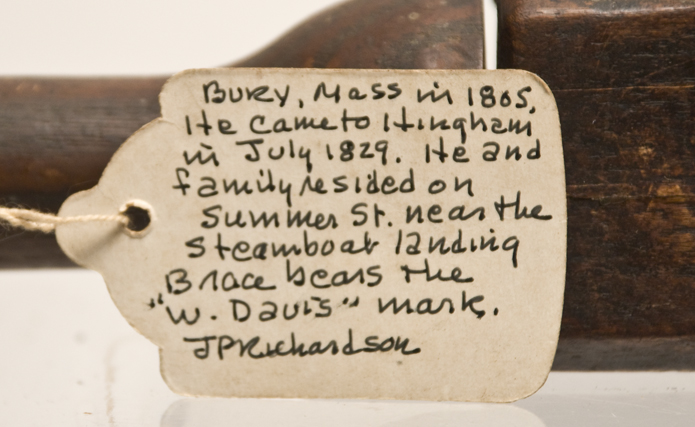 Bury, Mass in 1805.
He came to Hingham
in July 1829. He and
family resided on
Summer St. near the
Steamboat landing
Brace bears the
"W. Davis" mark.
JPRichardson